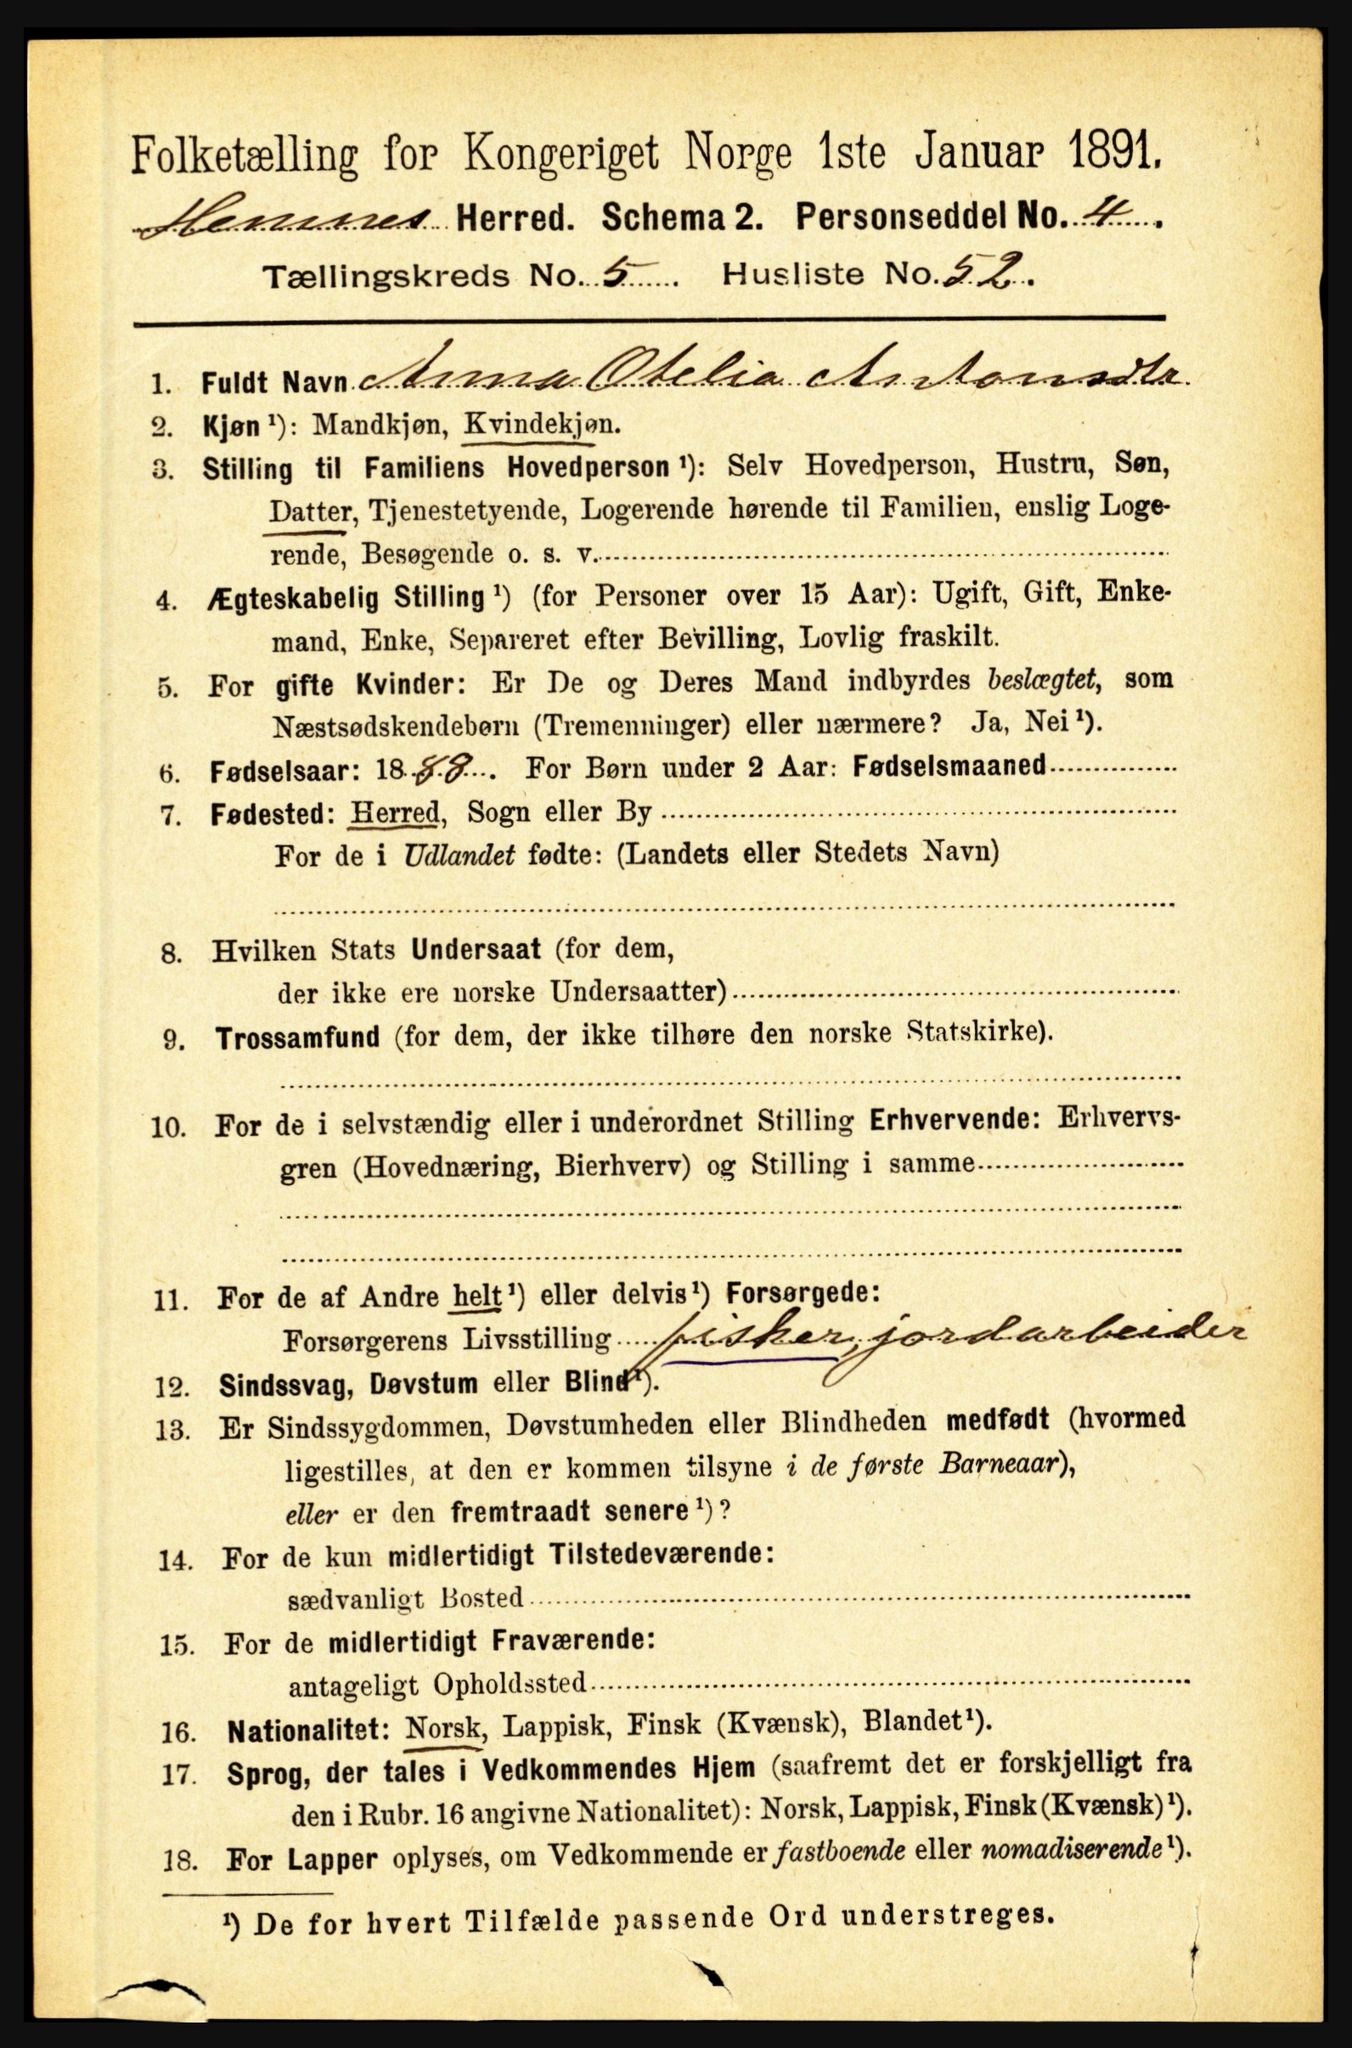 Folketælling for Kongeriget Norge 1ste Januar 1891.
Hemnes Herred. Schema 2. Personseddel No. 4.
Tællingskreds No. 5. Husliste No. 52.
1. Fuldt Navn Anna Otelia Antonsdtr
2. Kjøn ¹): Mandkjøn, Kvindekjøn.
3. Stilling til Familiens Hovedperson ¹): Selv Hovedperson, Hustru, Søn,
Datter, Tjenestetyende, Logerende hørende til Familien, enslig Loge-
rende, Besøgende o. s. v.
4. Ægteskabelig Stilling ¹) (for Personer over 15 Aar): Ugift, Gift, Enke-
mand, Enke, Separeret efter Bevilling, Lovlig fraskilt.
5. For gifte Kvinder: Er De og Deres Mand indbyrdes beslægtet, som
Næstsødskendebørn (Tremenninger) eller nærmere? Ja, Nei ¹).
6. Fødselsaar: 1888. For Børn under 2 Aar: Fødselsmaaned
7. Fødested: Herred, Sogn eller By
For de i Udlandet fødte: (Landets eller Stedets Navn)
8. Hvilken Stats Undersaat (for dem,
der ikke ere norske Undersaatter)
9. Trossamfund (for dem, der ikke tilhøre den norske Statskirke).
10. For de i selvstændig eller i underordnet Stilling Erhvervende: Erhvervs-
gren (Hovednæring, Bierhverv) og Stilling i samme
11. For de af Andre helt ¹) eller delvis ¹) Forsørgede:
Forsørgerens Livsstilling fisker, jordarbeider
12. Sindssvag, Døvstum eller Blind ¹).
13. Er Sindssygdommen, Døvstumheden eller Blindheden medfødt (hvormed
ligestilles, at den er kommen tilsyne i de første Barneaar),
eller er den fremtraadt senere ¹)?
14. For de kun midlertidigt Tilstedeværende:
sædvanligt Bosted
15. For de midlertidigt Fraværende:
antageligt Opholdssted
16. Nationalitet: Norsk, Lappisk, Finsk (Kvænsk), Blandet ¹).
17. Sprog, der tales i Vedkommendes Hjem (saafremt det er forskjelligt fra
den i Rubr. 16 angivne Nationalitet): Norsk, Lappisk, Finsk (Kvænsk) ¹).
18. For Lapper oplyses, om Vedkommende er fastboende eller nomadiserende ¹).
¹) De for hvert Tilfælde passende Ord understreges.